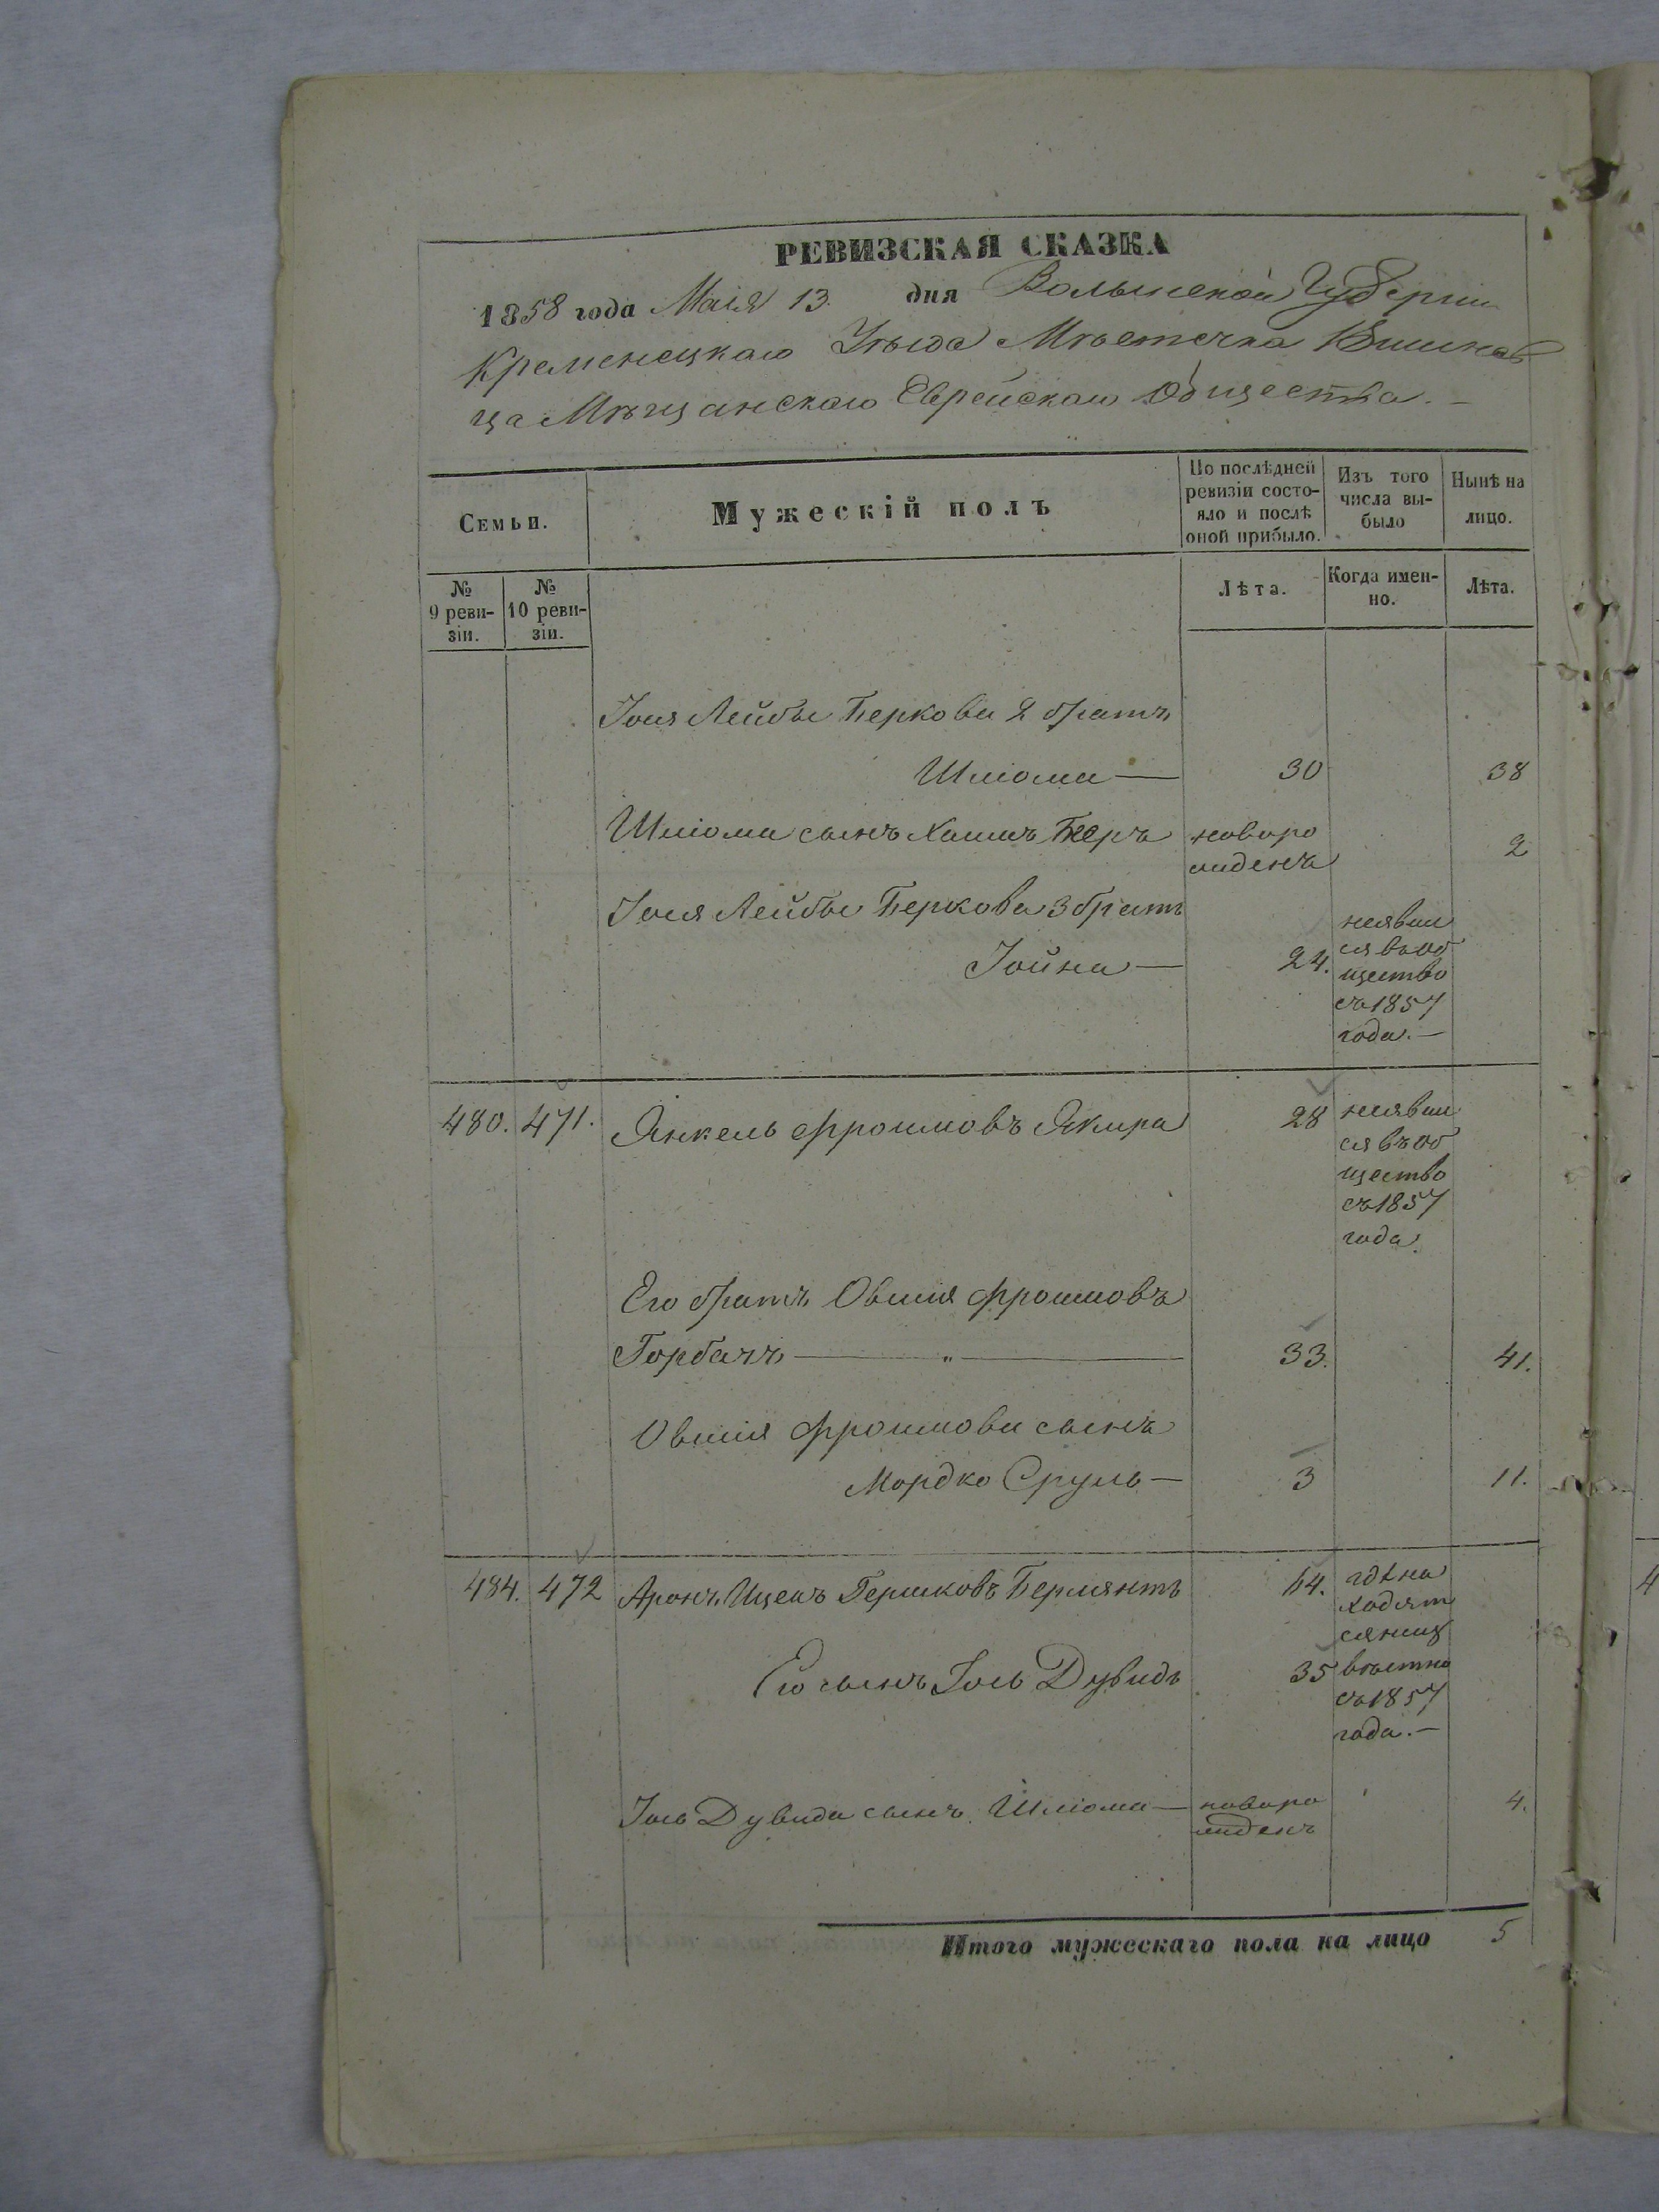 РЕВИЗСКАЯ СКАЗКА
1858 года Маія 13. дня Волынской Губерніи
Кременецкаго Уѣзда Мѣстечка Вишнев
ца Мѣщанскаго Еврейскаго Общества. —
Семьи.
Мужескій полъ
По послѣдней ревизіи состояло и послѣ оной прибыло.
Изъ того числа выбыло
Нынѣ на лицо.
№ 9 ревизіи.
№ 10 ревизіи.
Лѣта.
Когда именно.
Лѣта.
Іося Лейбы Беркова 2 братъ
Шліома — 30 38
Шліома сынъ Хаимъ Беръ новоро 2
жденъ
Іося Лейбы Беркова 3 братъ
Іойна — 24. неявил
ся въ об
щество
съ 1857
года. —
480. 471. Янкель Фроимовъ Якира 28 неявил
ся въ об
щество
съ 1857
года.
Его братъ Овшія Фроимовъ
Горбачъ — " — 33. 41.
Овшія Фроимова сынъ
Мордко Сруль — 3 11.
484. 472 Аронъ Ицекъ Гершковъ 64. гдѣ на
ходят
ся неиз
Его сынъ Іось Дувидъ 35 вѣстно
съ 1857
года. —
Іось Дувида сынъ Шліома — новоро 4.
жденъ
Итого мужескаго пола на лицо 5